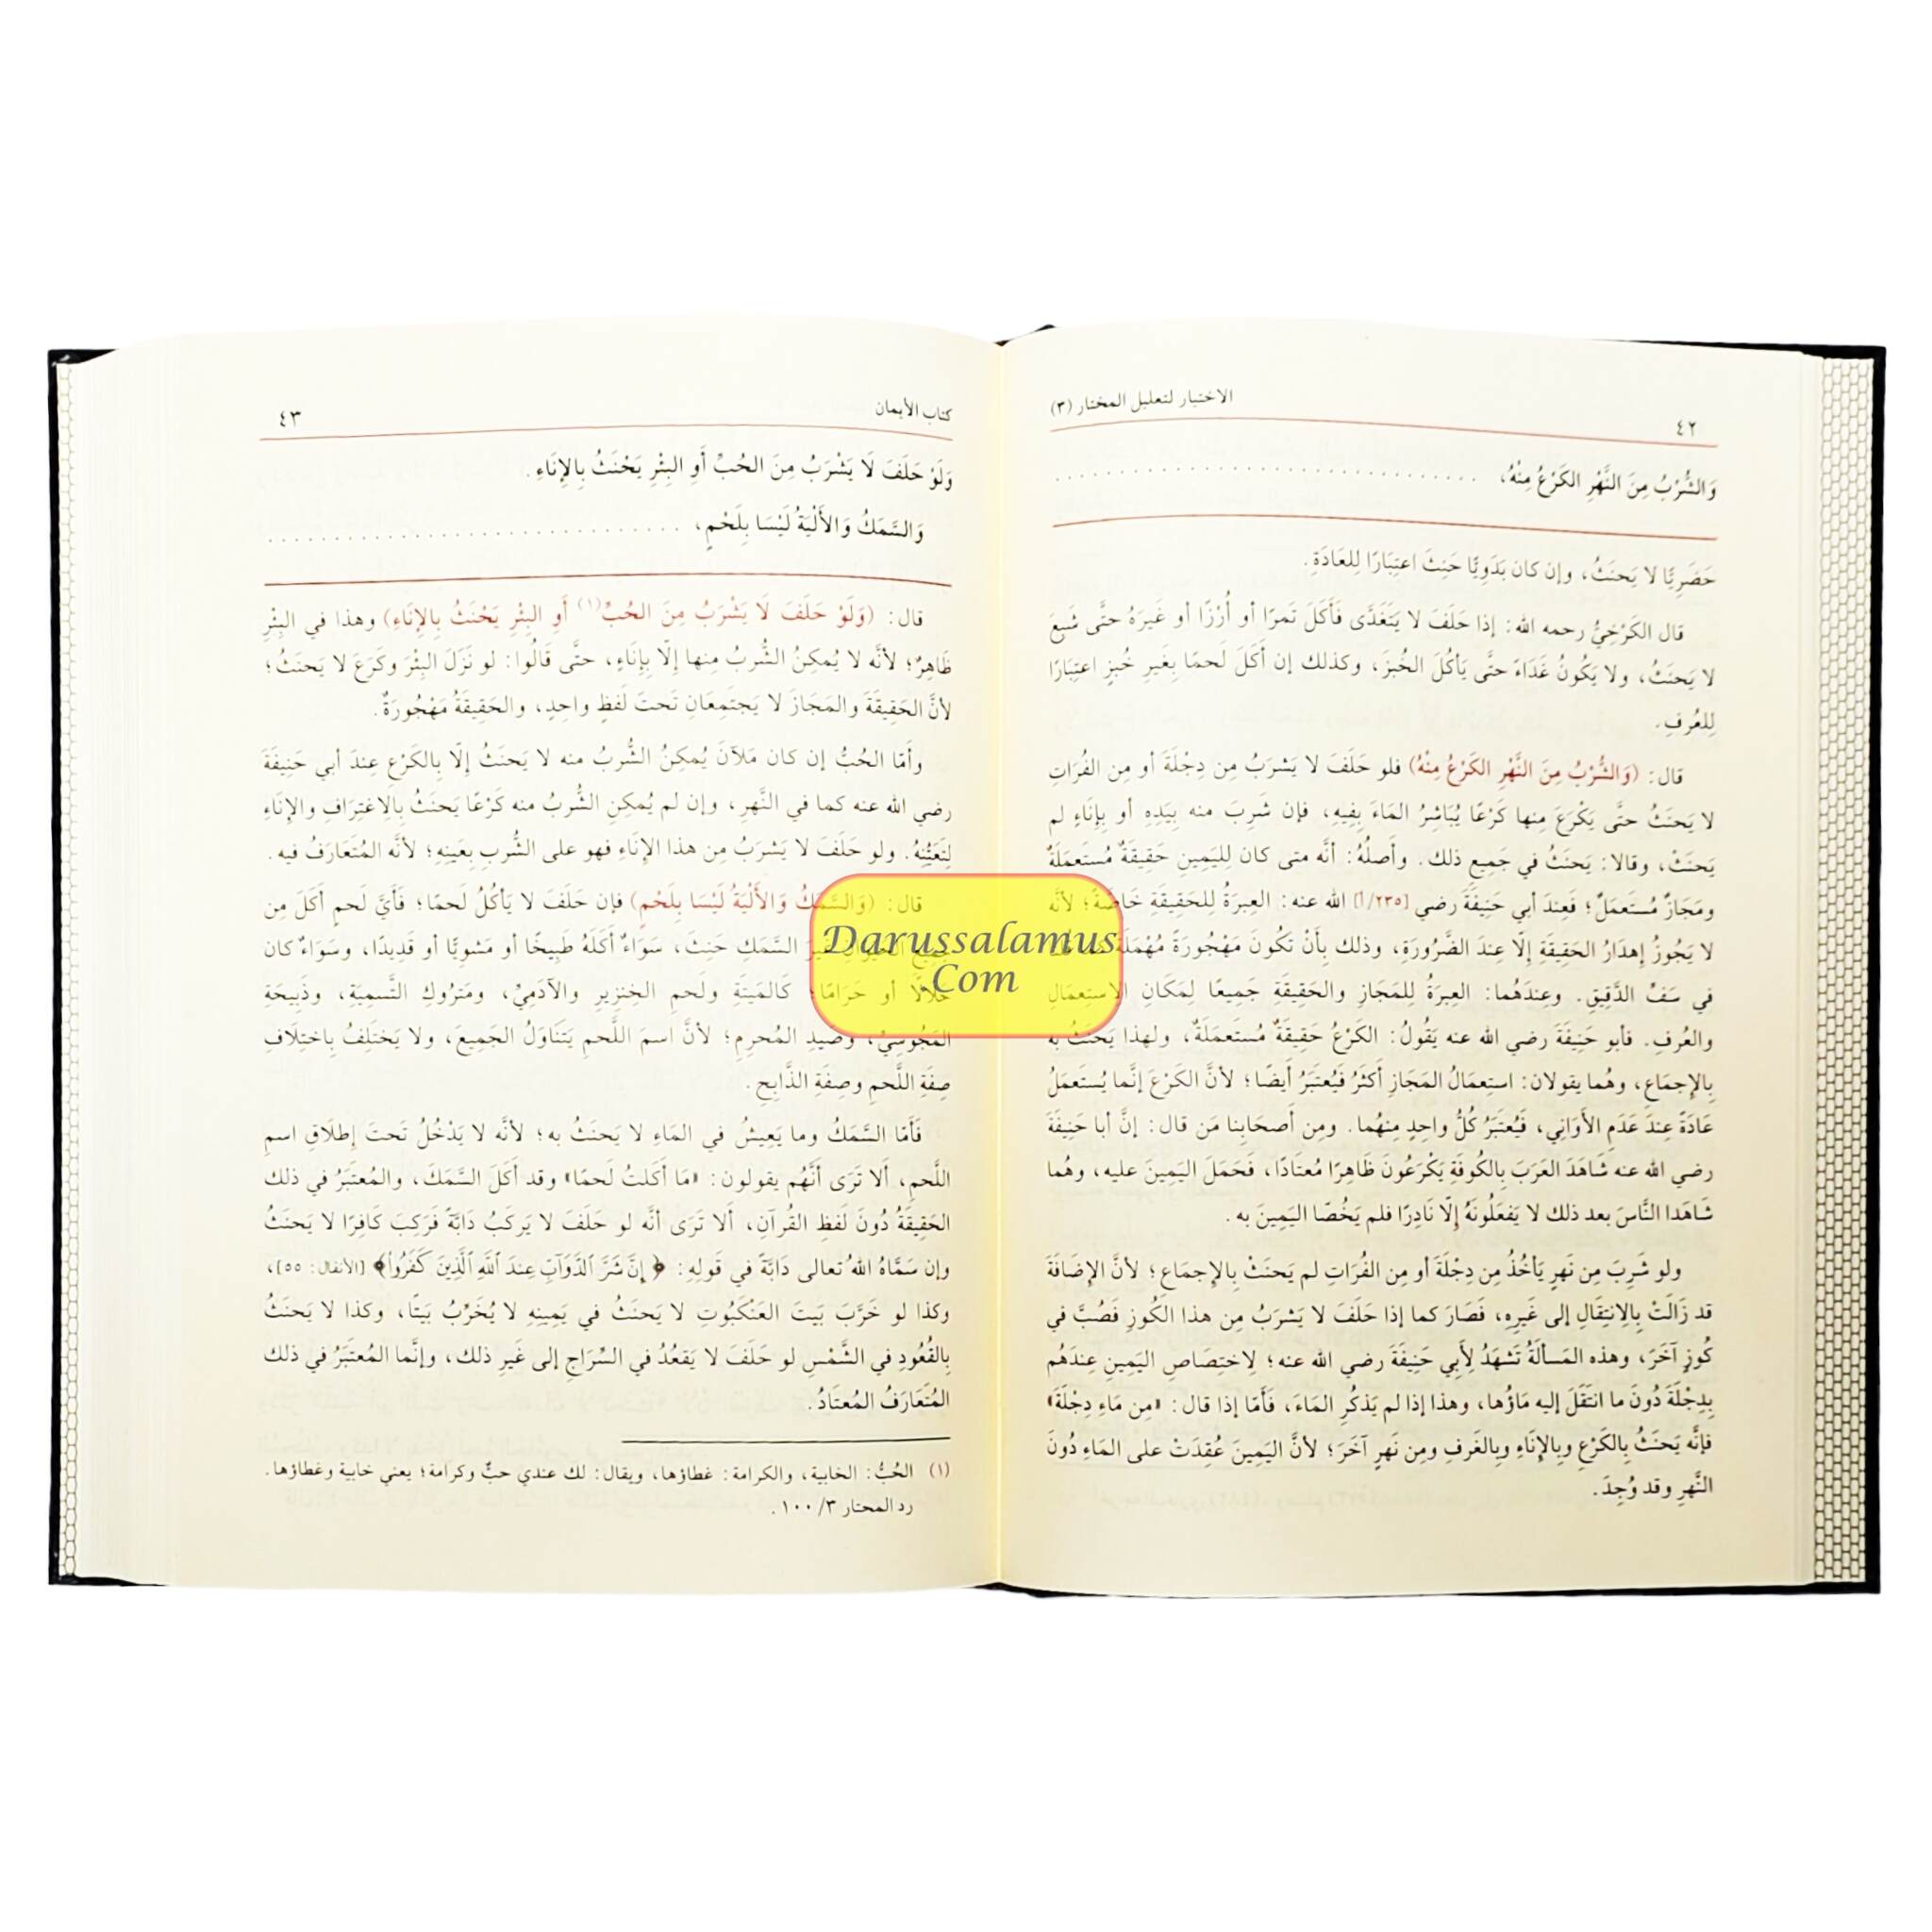 ٤٢ الاختيار لتعليل المختار (٣)
وَالشُّرْبُ مِنَ النَّهْرِ الكَرْعُ مِنْهُ، . . . . . . . . . . . . . . . . . . . . . . . . . . . . .
حَضَرِيًّا لا يَحنَثُ، وإن كان بَدَوِيًّا حَنِثَ اعتِبَارًا لِلعَادَةِ.
قال الكَرْخِيُّ رحمه الله: إذا حَلَفَ لا يَتَغَدَّى فَأَكَلَ تَمرًا أو أُرْزًا أو غَيرَهُ حتَّى شَبِعَ
لا يَحنَثُ، ولا يَكُونُ غَدَاءً حتَّى يَأكُلَ الخُبزَ، وكذلك إن أكَلَ لَحمًا بِغَيرِ خُبزٍ اعتِبَارًا
لِلعُرفِ.
قال: (وَالشُّرْبُ مِنَ النَّهْرِ الكَرْعُ مِنْهُ) فلو حَلَفَ لا يَشرَبُ مِن دِجْلَةَ أو مِن الفُرَاتِ
لا يَحنَثُ حتَّى يَكْرَعَ مِنها كَرْعًا يُبَاشِرُ المَاءَ بِفِيهِ، فإن شَرِبَ منه بِيَدِهِ أو بِإنَاءٍ لم
يَحنَثْ، وقالا: يَحنَثُ في جَمِيعِ ذلك. وأصلُهُ: أنَّه متى كان لِليَمِينِ حَقِيقَةٌ مُستَعمَلَةٌ
ومَجَازٌ مُستَعمَلٌ؛ فَعِندَ أبي حَنِيفَةَ رضي [٢٣٥/أ] الله عنه: العِبرَةُ لِلحَقِيقَةِ خَاصَّةً؛ لأنَّه
لا يَجُوزُ إهدَارُ الحَقِيقَةِ إلّا عِندَ الضَّرُورَةِ، وذلك بِأَنْ تَكُونَ مَهْجُورَةً مُهْمَلَةً
في سَفِّ الدَّقِيقِ. وعِندَهُما: العِبرَةُ لِلمَجَازِ والحَقِيقَةِ جَمِيعًا لِمَكَانِ الاستِعمَالِ
والعُرفِ. فأبو حَنِيفَةَ رضي الله عنه يَقُولُ: الكَرْعُ حَقِيقَةٌ مُستَعمَلَةٌ، ولهذا يَحنَثُ به
بِالإجمَاعِ، وهُما يقولان: استِعمَالُ المَجَازِ أكثَرُ فَيُعتَبَرُ أيضًا؛ لأنَّ الكَرْعَ إنَّما يُستَعمَلُ
عَادَةً عِندَ عَدَمِ الأَوَانِي، فَيُعتَبَرُ كُلُّ واحِدٍ مِنهُما. ومِن أصحَابِنا مَن قال: إنَّ أبا حَنِيفَةَ
رضي الله عنه شَاهَدَ العَرَبَ بِالكُوفَةِ يَكْرَعُونَ ظَاهِرًا مُعتَادًا، فَحَمَلَ اليَمِينَ عليه، وهُما
شَاهَدا النَّاسَ بعد ذلك لا يَفعَلُونَهُ إلّا نَادِرًا فلم يَخُصّا اليَمِينَ به.
ولو شَرِبَ مِن نَهرٍ يَأخُذُ مِن دِجْلَةَ أو مِن الفُرَاتِ لم يَحنَثْ بِالإجمَاعِ؛ لأنَّ الإضَافَةَ
قد زَالَتْ بِالانتِقَالِ إلى غَيرِهِ، فَصَارَ كما إذا حَلَفَ لا يَشرَبُ مِن هذا الكُوزِ فَصُبَّ في
كُوزٍ آخَرَ، وهذه المَسألَةُ تَشهَدُ لِأَبِي حَنِيفَةَ رضي الله عنه؛ لِاختِصَاصِ اليَمِينِ عِندَهُم
بِدِجْلَةَ دُونَ ما انتَقَلَ إليه مَاؤُها، وهذا إذا لم يَذكُرِ المَاءَ، فَأَمّا إذا قال: «مِن مَاءِ دِجْلَةَ»
فإنَّه يَحنَثُ بِالكَرْعِ وبِالإنَاءِ وبِالغَرفِ ومِن نَهرٍ آخَرَ؛ لأنَّ اليَمِينَ عُقِدَتْ على المَاءِ دُونَ
النَّهرِ وقد وُجِدَ.
كتاب الأيمان ٤٣
وَلَوْ حَلَفَ لَا يَشْرَبُ مِنَ الحُبِّ أَوِ البِئْرِ يَحْنَثُ بِالإِنَاءِ.
وَالسَّمَكُ وَالأَلْيَةُ لَيْسَا بِلَحْمٍ، . . . . . . . . . . . . . . . . . . . . . . . . . . . .
قال: (وَلَوْ حَلَفَ لَا يَشْرَبُ مِنَ الحُبِّ(١) أَوِ البِئْرِ يَحْنَثُ بِالإِنَاءِ) وهذا في البِئْرِ
ظَاهِرٌ؛ لأنَّه لا يُمكِنُ الشُّربُ مِنها إلّا بِإنَاءٍ، حتَّى قَالُوا: لو نَزَلَ البِئْرَ وكَرَعَ لا يَحنَثُ؛
لأنَّ الحَقِيقَةَ والمَجَازَ لا يَجتَمِعَانِ تَحتَ لَفظٍ واحِدٍ، والحَقِيقَةُ مَهْجُورَةٌ.
وأَمّا الحُبُّ إن كان مَلآنَ يُمكِنُ الشُّربُ منه لا يَحنَثُ إلّا بِالكَرْعِ عِندَ أبي حَنِيفَةَ
رضي الله عنه كما في النَّهرِ، وإن لم يُمكِنِ الشُّربُ منه كَرْعًا يَحنَثُ بِالِاغتِرَافِ والإنَاءِ
لِتَعَيُّنِهُ. ولو حَلَفَ لا يَشرَبُ مِن هذا الإنَاءِ فهو على الشُّربِ بِعَينِهِ؛ لأنَّه المُتَعَارَفُ فيه.
قال: (وَالسَّمَكُ وَالأَلْيَةُ لَيْسَا بِلَحْمٍ) فإن حَلَفَ لا يَأكُلُ لَحمًا؛ فَأَيَّ لَحمٍ أكَلَ مِن
جَمِيعِ الحَيَوَانِ غَيرَ السَّمَكِ حَنِثَ، سَوَاءٌ أكَلَهُ طَبِيخًا أو مَشوِيًّا أو قَدِيدًا، وسَوَاءٌ كان
حَلَالًا أو حَرَامًا؛ كَالمَيتَةِ ولَحمِ الخِنزِيرِ والآدَمِيِّ، ومَترُوكِ التَّسمِيَةِ، وذَبِيحَةِ
المَجُوسِيِّ، وصَيدِ المُحرِمِ؛ لأنَّ اسمَ اللَّحمِ يَتَنَاوَلُ الجَمِيعَ، ولا يَختَلِفُ بِاختِلَافِ
صِفَةِ اللَّحمِ وصِفَةِ الذَّابِحِ.
فَأَمّا السَّمَكُ وما يَعِيشُ في المَاءِ لا يَحنَثُ به؛ لأنَّه لا يَدْخُلُ تَحتَ إطلَاقِ اسمِ
اللَّحمِ، ألا تَرَى أنَّهُم يقولون: «مَا أَكَلتُ لَحمًا» وقد أكَلَ السَّمَكَ، والمُعتَبَرُ في ذلك
الحَقِيقَةُ دُونَ لَفظِ القُرآنِ، ألا تَرَى أنَّه لو حَلَفَ لا يَركَبُ دَابَّةً فَرَكِبَ كَافِرًا لا يَحنَثُ
وإن سَمَّاهُ اللهُ تعالى دَابَّةً في قَولِهِ: ﴿إِنَّ شَرَّ ٱلدَّوَآبِّ عِندَ ٱللَّهِ ٱلَّذِينَ كَفَرُوا﴾ [الأنفال: ٥٥]،
وكذا لو خَرَّبَ بَيتَ العَنْكَبُوتِ لا يَحنَثُ في يَمِينِهِ لا يُخَرِّبُ بَيتًا، وكذا لا يَحنَثُ
بِالقُعُودِ في الشَّمْسِ لو حَلَفَ لا يَقعُدُ في السِّرَاجِ إلى غَيرِ ذلك، وإنَّما المُعتَبَرُ في ذلك
المُتَعَارَفُ المُعتَادُ.
(١) الحُبُّ: الخابية، والكرامة: غطاؤها، ويقال: لك عندي حبٌّ وكرامة؛ يعني خابية وغطاؤها.
رد المحتار ٣/ ١٠٠.
Darussalamus
.Com